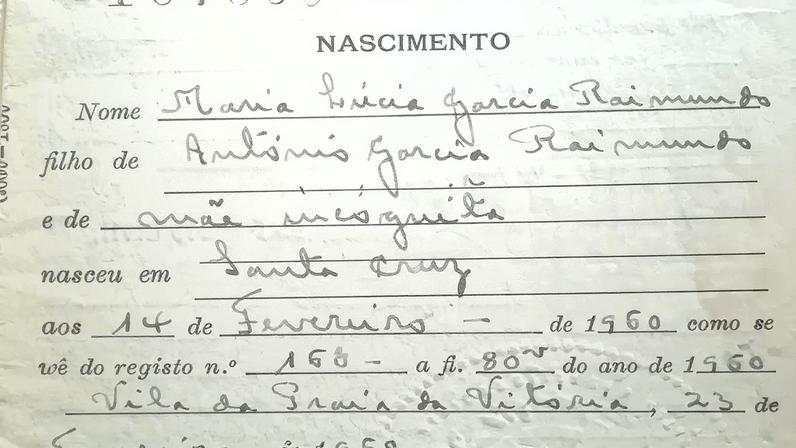 NASCIMENTO
Nome Maria Lúcia Garcia Raimundo
filho de António Garcia Raimundo
e de mãe incógnita
nasceu em Santa Cruz
aos 14 de Fevereiro - de 1960 como se
vê do registo n.º 160 - a fl. 80v do ano de 1960
Vila da Praia da Vitória, 23 de